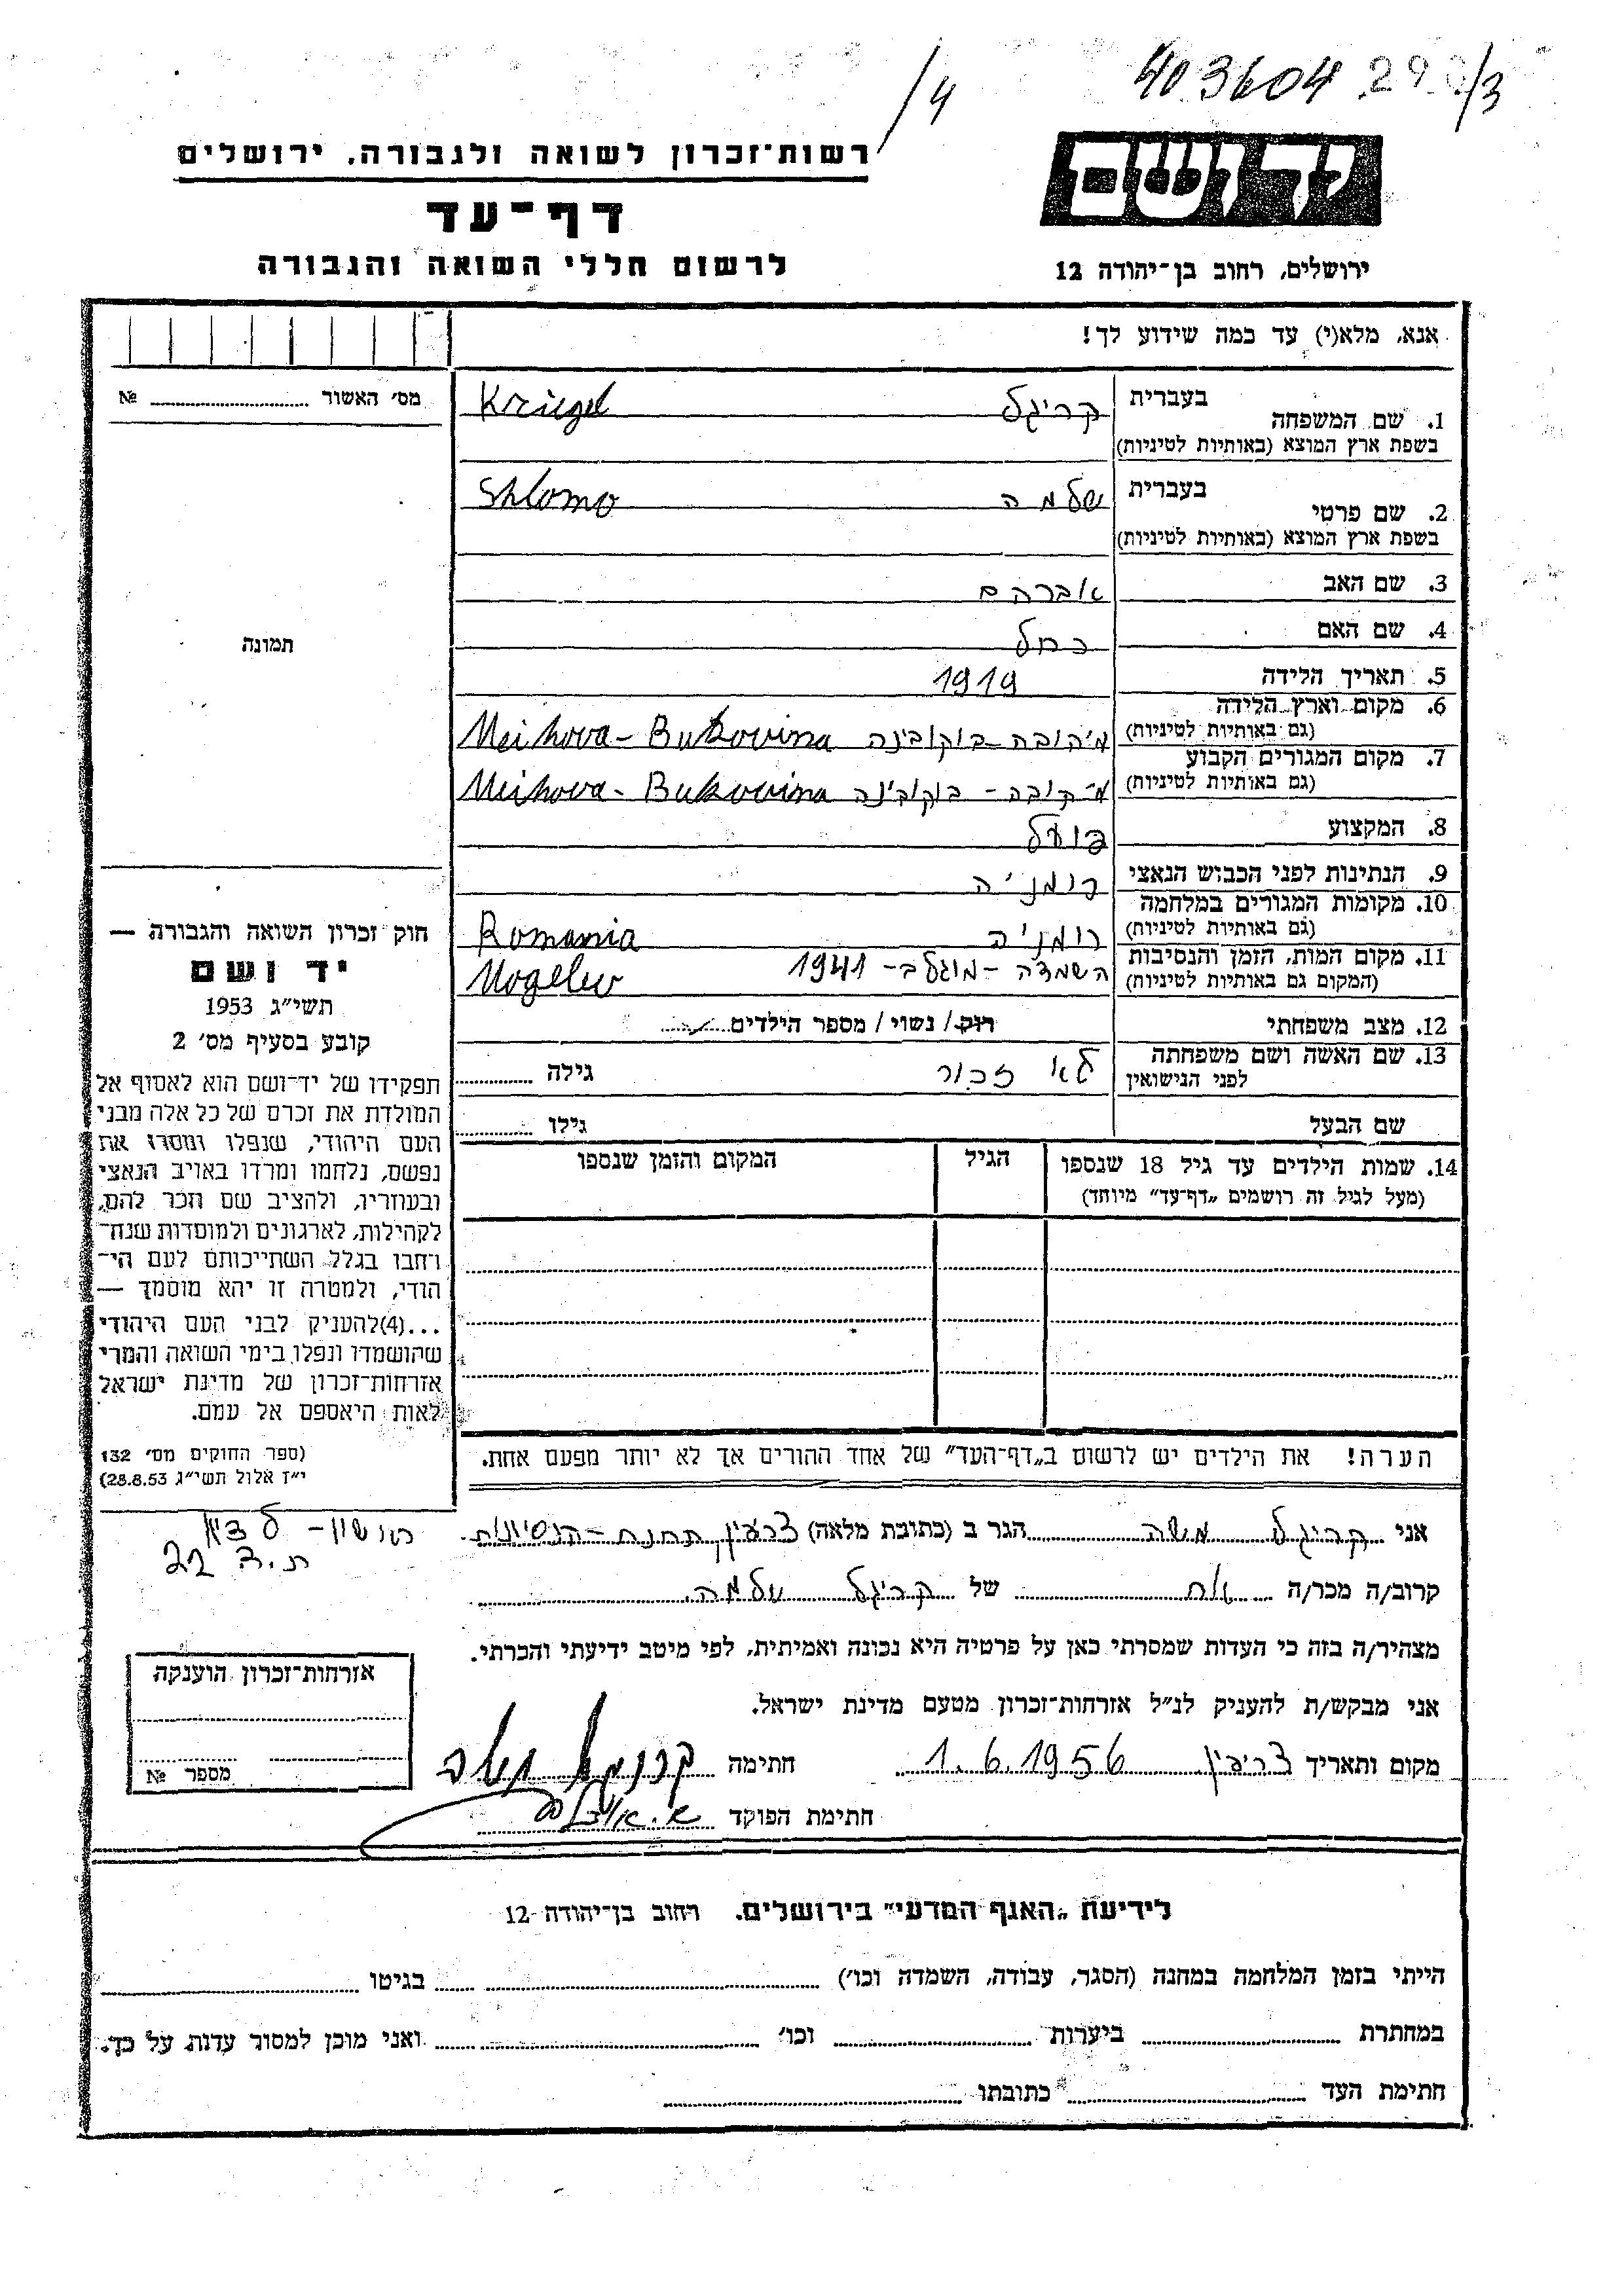 /4
403604 29 /3
רשות־זכרון לשואה ולגבורה, ירושלים
דף־עד
לרשום חללי השואה והגבורה
יד ושם
ירושלים, רחוב בן־יהודה 12
אנא, מלא(י) עד כמה שידוע לך!
מס' האשור № ........
תמונה
1. שם המשפחה בעברית קריגל Kriegel
בשפת ארץ המוצא (באותיות לטיניות)
2. שם פרטי בעברית שלמה Shlomo
בשפת ארץ המוצא (באותיות לטיניות)
3. שם האב אברהם
4. שם האם רחל
5. תאריך הלידה 1919
6. מקום וארץ הלידה (גם באותיות לטיניות) מיהובה־בוקובינה Meihova - Bukowina
7. מקום המגורים הקבוע (גם באותיות לטיניות) בוקובינה Meihova - Bukowina
8. המקצוע פועל
9. הנתינות לפני הכבוש הנאצי רומניה
10. מקומות המגורים במלחמה (גם באותיות לטיניות) רומניה Romania
11. מקום המות, הזמן והנסיבות (המקום גם באותיות לטיניות) השמדה - מוגלב - 1941 Mogelew
12. מצב משפחתי רוק / נשוי / מספר הילדים
13. שם האשה ושם משפחתה לפני הנישואין לא זכור גילה ........
שם הבעל גילו ........
14. שמות הילדים עד גיל 18 שנספו הגיל המקום והזמן שנספו
(מעל לגיל זה רושמים „דף־עד" מיוחד)
הערה! את הילדים יש לרשום ב„דף־העד" של אחד ההורים אך לא יותר מפעם אחת.
חוק זכרון השואה והגבורה —
יד ושם
תשי"ג 1953
קובע בסעיף מס' 2
תפקידו של יד־ושם הוא לאסוף אל
המולדת את זכרם של כל אלה מבני
העם היהודי, שנפלו ומסרו את
נפשם, נלחמו ומרדו באויב הנאצי
ובעוזריו, ולהציב שם וזכר להם,
לקהילות, לארגונים ולמוסדות שנח־
רבו בגלל השתייכותם לעם הי־
הודי, ולמטרה זו יהא מוסמך —
...(4)להעניק לבני העם היהודי
שהושמדו ונפלו בימי השואה והמרי
אזרחות־זכרון של מדינת ישראל
לאות היאספם אל עמם.
(ספר החוקים מס' 132
י"ז אלול תשי"ג 28.8.53)
אני קריגל משה הגר ב (כתובת מלאה) צריפין
ראשון - לציון
ת.ד 22
קרוב/ה מכר/ה אח של קריגל שלמה
מצהיר/ה בזה כי העדות שמסרתי כאן על פרטיה היא נכונה ואמיתית, לפי מיטב ידיעתי והכרתי.
אני מבקש/ת להעניק לנ"ל אזרחות־זכרון מטעם מדינת ישראל.
מקום ותאריך צריפין 1.6.1956 חתימה
חתימת הפוקד
אזרחות־זכרון הוענקה
מספר №
לידיעת „האגף המדעי" בירושלים. רחוב בן־יהודה 12
הייתי בזמן המלחמה במחנה (הסגר, עבודה, השמדה וכו') ........ בגיטו ........
במחתרת ........ ביערות ........ וכו' ........ ואני מוכן למסור עדות על כך.
חתימת העד ........ כתובתו ........